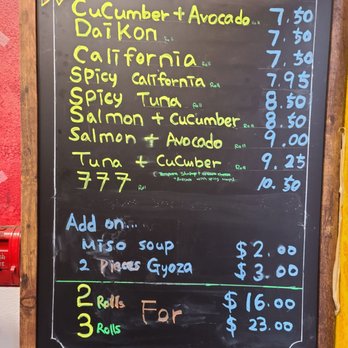 CuCumber + Avocado Roll 7.50
Daikon Roll 7.50
California Roll 7.50
Spicy California Roll 7.95
Spicy Tuna Roll 8.50
Salmon + Cucumber Roll 8.50
Salmon + Avocado Roll 9.00
Tuna + CuCumber Roll 9.25
777 Roll 10.50
Add on...
Miso soup $2.00
2 Pieces Gyoza $3.00
2 Rolls For $16.00
3 Rolls $23.00